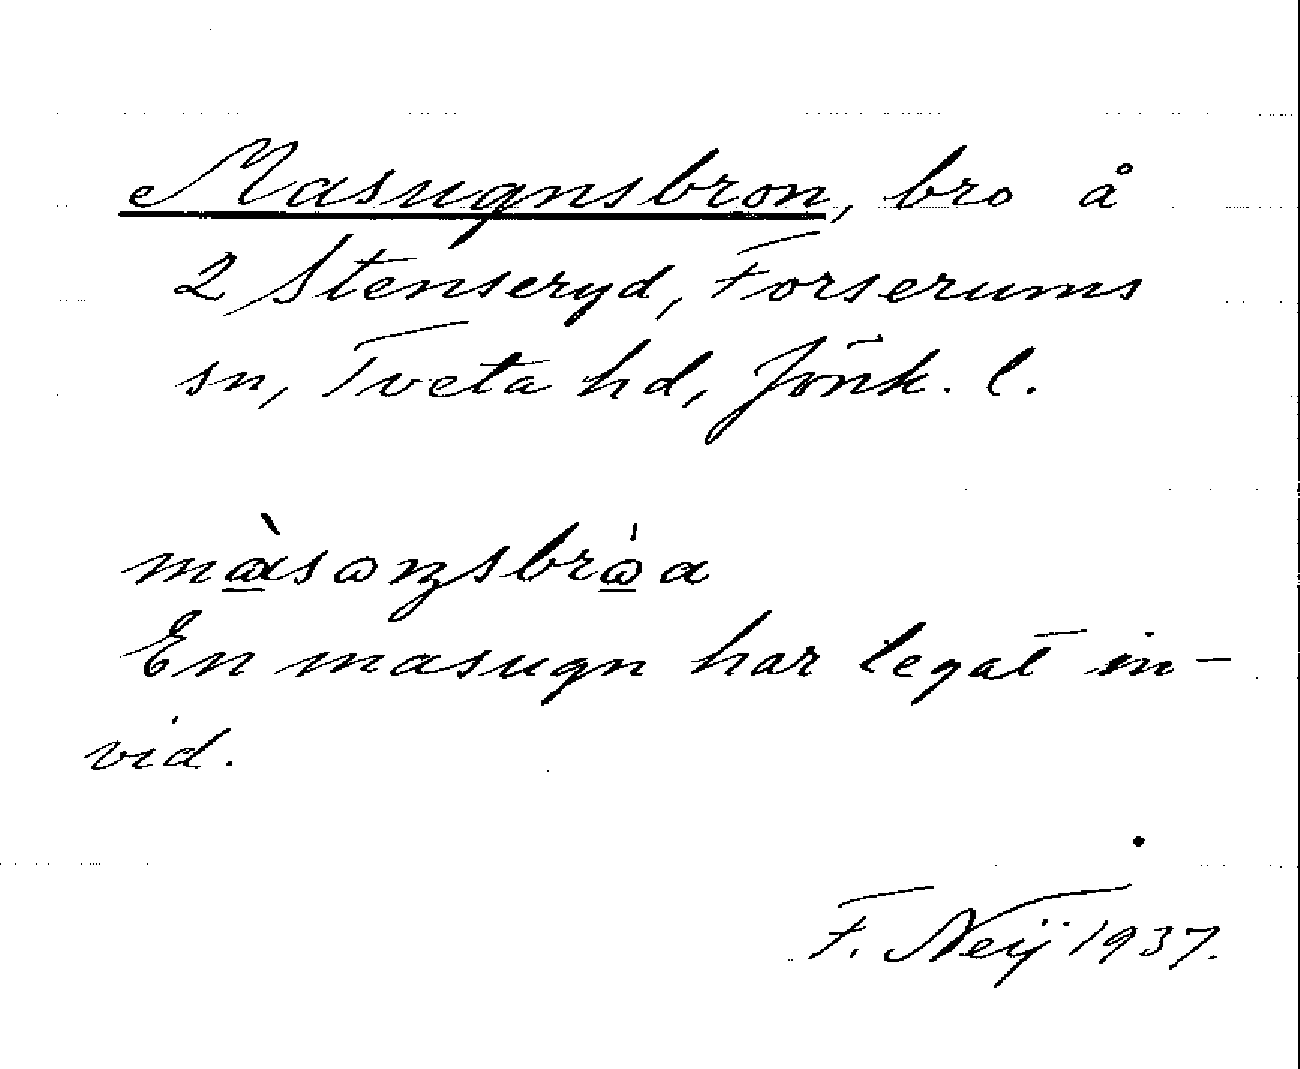 Masugnsbron, bro å
2 Stenseryd, Forserums
sn, Tveta hd, Jönk. l.
En masugn har legat in-
vid.
F. Neij 1937.